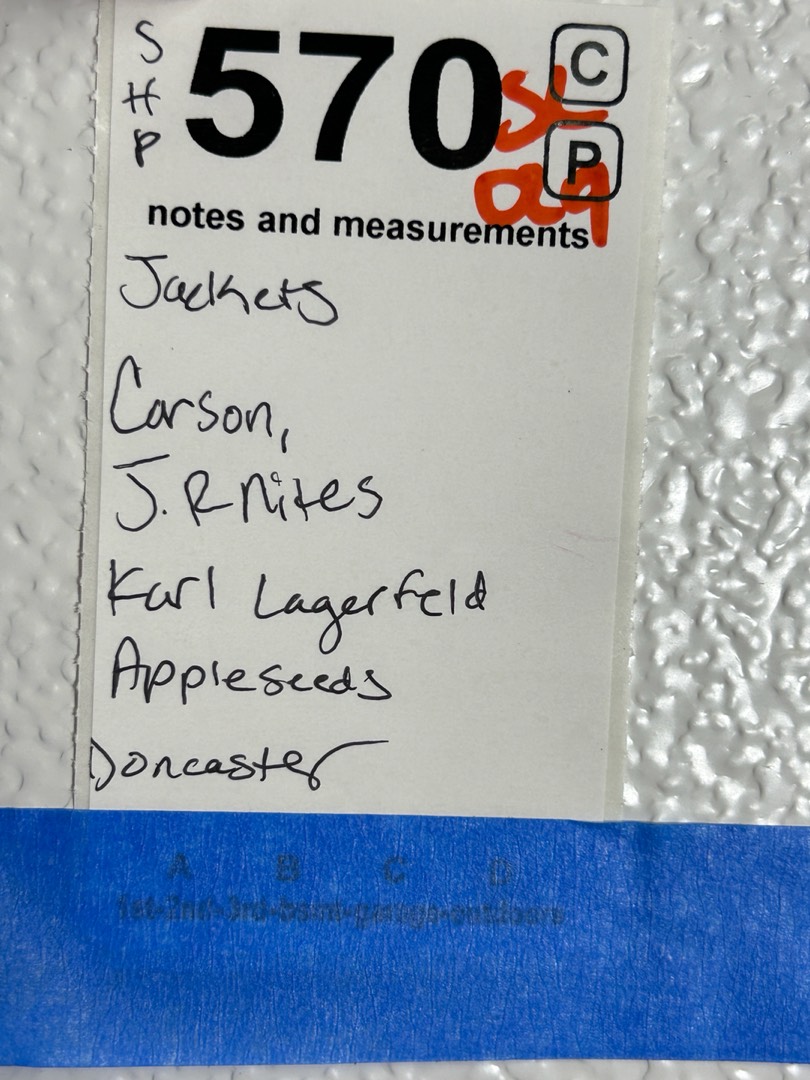 S
H
P
570
C
P
notes and measurements
Jackets
Carson,
J. R Nites
Karl Lagerfeld
Appleseeds
Doncaster
A B C D
1st-2nd-3rd-bsmt-garage-outdoors